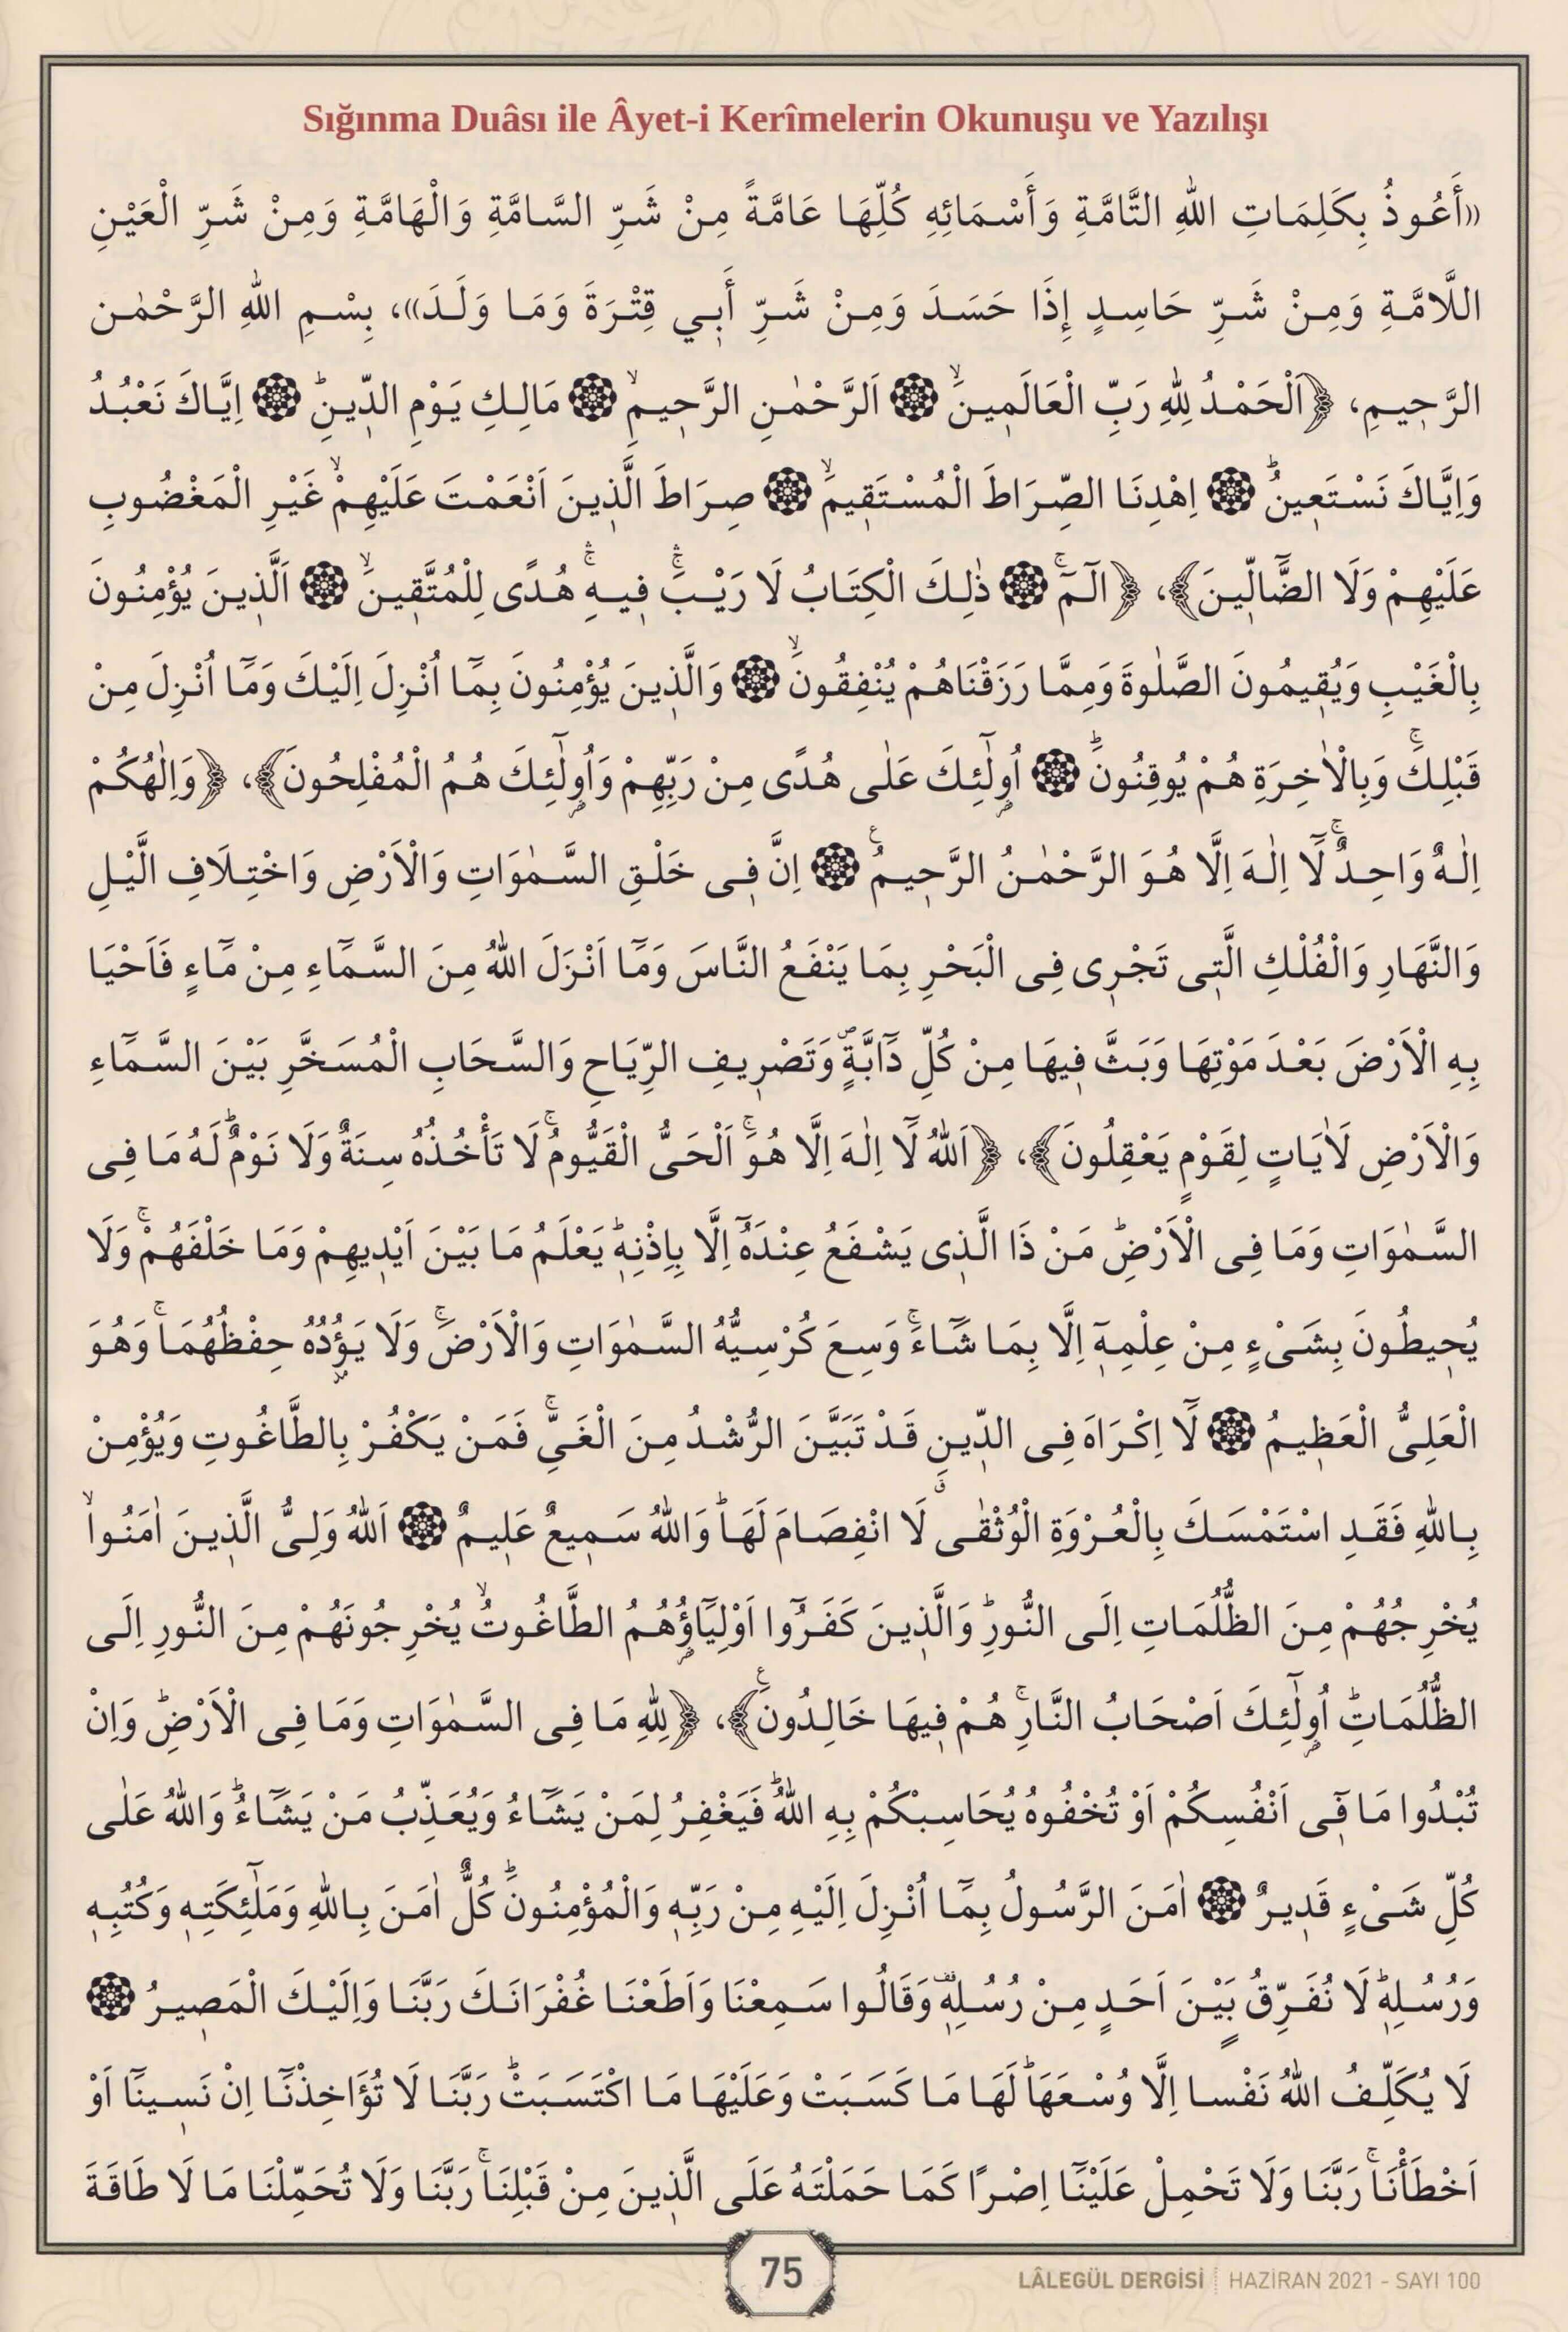 Sığınma Duâsı ile Âyet-i Kerîmelerin Okunuşu ve Yazılışı
«أَعُوذُ بِكَلِمَاتِ اللهِ التَّامَّةِ وَأَسْمَائِهِ كُلِّهَا عَامَّةً مِنْ شَرِّ السَّامَّةِ وَالْهَامَّةِ وَمِنْ شَرِّ الْعَيْنِ
اللَّامَّةِ وَمِنْ شَرِّ حَاسِدٍ إِذَا حَسَدَ وَمِنْ شَرِّ أَبِي قِتْرَةَ وَمَا وَلَدَ»، بِسْمِ اللهِ الرَّحْمٰنِ
الرَّحِيمِ، ﴿اَلْحَمْدُ لِلّٰهِ رَبِّ الْعَالَمِينَۙ ۞ اَلرَّحْمٰنِ الرَّحِيمِۙ ۞ مَالِكِ يَوْمِ الدِّينِۜ ۞ اِيَّاكَ نَعْبُدُ
وَاِيَّاكَ نَسْتَعِينُۜ ۞ اِهْدِنَا الصِّرَاطَ الْمُسْتَقِيمَۙ ۞ صِرَاطَ الَّذِينَ اَنْعَمْتَ عَلَيْهِمْۙ غَيْرِ الْمَغْضُوبِ
عَلَيْهِمْ وَلَا الضَّٓالِّينَ﴾، ﴿الٓمٓۚ ۞ ذٰلِكَ الْكِتَابُ لَا رَيْبَۚۛ فِيهِۚۛ هُدًى لِلْمُتَّقِينَۙ ۞ اَلَّذِينَ يُؤْمِنُونَ
بِالْغَيْبِ وَيُقِيمُونَ الصَّلٰوةَ وَمِمَّا رَزَقْنَاهُمْ يُنْفِقُونَۙ ۞ وَالَّذِينَ يُؤْمِنُونَ بِمَٓا اُنْزِلَ اِلَيْكَ وَمَٓا اُنْزِلَ مِنْ
قَبْلِكَۚ وَبِالْاٰخِرَةِ هُمْ يُوقِنُونَۜ ۞ اُو۬لٰٓئِكَ عَلٰى هُدًى مِنْ رَبِّهِمْ وَاُو۬لٰٓئِكَ هُمُ الْمُفْلِحُونَ﴾، ﴿وَاِلٰهُكُمْ
اِلٰهٌ وَاحِدٌۚ لَٓا اِلٰهَ اِلَّا هُوَ الرَّحْمٰنُ الرَّحِيمُ۟ ۞ اِنَّ فِى خَلْقِ السَّمٰوَاتِ وَالْاَرْضِ وَاخْتِلَافِ الَّيْلِ
وَالنَّهَارِ وَالْفُلْكِ الَّتِى تَجْرِى فِى الْبَحْرِ بِمَا يَنْفَعُ النَّاسَ وَمَٓا اَنْزَلَ اللهُ مِنَ السَّمَٓاءِ مِنْ مَٓاءٍ فَاَحْيَا
بِهِ الْاَرْضَ بَعْدَ مَوْتِهَا وَبَثَّ فِيهَا مِنْ كُلِّ دَٓابَّةٍۖ وَتَصْرِيفِ الرِّيَاحِ وَالسَّحَابِ الْمُسَخَّرِ بَيْنَ السَّمَٓاءِ
وَالْاَرْضِ لَاٰيَاتٍ لِقَوْمٍ يَعْقِلُونَ﴾، ﴿اَللهُ لَٓا اِلٰهَ اِلَّا هُوَۚ اَلْحَىُّ الْقَيُّومُۚ لَا تَأْخُذُهُ سِنَةٌ وَلَا نَوْمٌۜ لَهُ مَا فِى
السَّمٰوَاتِ وَمَا فِى الْاَرْضِۜ مَنْ ذَا الَّذِى يَشْفَعُ عِنْدَهُٓ اِلَّا بِاِذْنِهِۜ يَعْلَمُ مَا بَيْنَ اَيْدِيهِمْ وَمَا خَلْفَهُمْۚ وَلَا
يُحِيطُونَ بِشَىْءٍ مِنْ عِلْمِهِٓ اِلَّا بِمَا شَٓاءَۚ وَسِعَ كُرْسِيُّهُ السَّمٰوَاتِ وَالْاَرْضَۚ وَلَا يَؤُ۫دُهُ حِفْظُهُمَاۚ وَهُوَ
الْعَلِىُّ الْعَظِيمُ ۞ لَٓا اِكْرَاهَ فِى الدِّينِ قَدْ تَبَيَّنَ الرُّشْدُ مِنَ الْغَىِّۚ فَمَنْ يَكْفُرْ بِالطَّاغُوتِ وَيُؤْمِنْ
بِاللهِ فَقَدِ اسْتَمْسَكَ بِالْعُرْوَةِ الْوُثْقٰىۗ لَا انْفِصَامَ لَهَاۜ وَاللهُ سَمِيعٌ عَلِيمٌ ۞ اَللهُ وَلِىُّ الَّذِينَ اٰمَنُواۙ
يُخْرِجُهُمْ مِنَ الظُّلُمَاتِ اِلَى النُّورِۜ وَالَّذِينَ كَفَرُٓوا اَوْلِيَٓاؤُ۬هُمُ الطَّاغُوتُۙ يُخْرِجُونَهُمْ مِنَ النُّورِ اِلَى
الظُّلُمَاتِۜ اُو۬لٰٓئِكَ اَصْحَابُ النَّارِۚ هُمْ فِيهَا خَالِدُونَ۟﴾، ﴿لِلّٰهِ مَا فِى السَّمٰوَاتِ وَمَا فِى الْاَرْضِۜ وَاِنْ
تُبْدُوا مَا فِٓى اَنْفُسِكُمْ اَوْ تُخْفُوهُ يُحَاسِبْكُمْ بِهِ اللهُۜ فَيَغْفِرُ لِمَنْ يَشَٓاءُ وَيُعَذِّبُ مَنْ يَشَٓاءُۜ وَاللهُ عَلٰى
كُلِّ شَىْءٍ قَدِيرٌ ۞ اٰمَنَ الرَّسُولُ بِمَٓا اُنْزِلَ اِلَيْهِ مِنْ رَبِّهِ وَالْمُؤْمِنُونَۜ كُلٌّ اٰمَنَ بِاللهِ وَمَلٰٓئِكَتِهِ وَكُتُبِهِ
وَرُسُلِهِۜ لَا نُفَرِّقُ بَيْنَ اَحَدٍ مِنْ رُسُلِهِ۠ وَقَالُوا سَمِعْنَا وَاَطَعْنَا غُفْرَانَكَ رَبَّنَا وَاِلَيْكَ الْمَصِيرُ ۞
لَا يُكَلِّفُ اللهُ نَفْسا اِلَّا وُسْعَهَاۜ لَهَا مَا كَسَبَتْ وَعَلَيْهَا مَا اكْتَسَبَتْۜ رَبَّنَا لَا تُؤَاخِذْنَٓا اِنْ نَسِينَٓا اَوْ
اَخْطَأْنَاۚ رَبَّنَا وَلَا تَحْمِلْ عَلَيْنَٓا اِصْرًا كَمَا حَمَلْتَهُ عَلَى الَّذِينَ مِنْ قَبْلِنَاۚ رَبَّنَا وَلَا تُحَمِّلْنَا مَا لَا طَاقَةَ
75
LÂLEGÜL DERGİSİ | HAZİRAN 2021 - SAYI 100